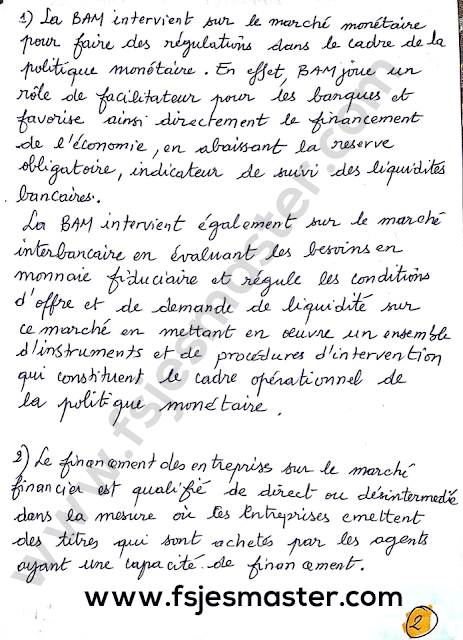 1) La BAM intervient sur le marché monétaire
pour faire des régulations dans le cadre de la
politique monétaire. En effet, BAM joue un
rôle de facilitateur pour les banques et
favorise ainsi directement le financement
de l'économie, en abaissant la reserve
obligatoire, indicateur de suivi des liquidités
bancaires.
La BAM intervient également sur le marché
interbancaire en évaluant les besoins en
monnaie fiduciaire et régule les conditions
d'offre et de demande de liquidité sur
ce marché en mettant en oeuvre un ensemble
d'instruments et de procédures d'intervention
qui constituent le cadre opérationnel de
la politique monétaire.
2) Le financement des entreprises sur le marché
financier est qualifié de direct ou désintermedié
dans la mesure où les Entreprises emettent
des titres qui sont achetés par les agents
ayant une capacité de financement.
www.fsjesmaster.com
www.fsjesmaster.com
2